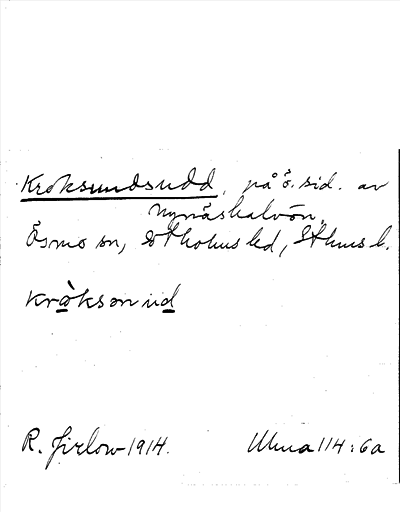 Kroksundsudd, på ö. sid. av
Nynäshalvön.
Ösmo sn, Sotholms hd, Sthms l.
kròksonud
R. Jirlow 1914. Ulma 114:6a